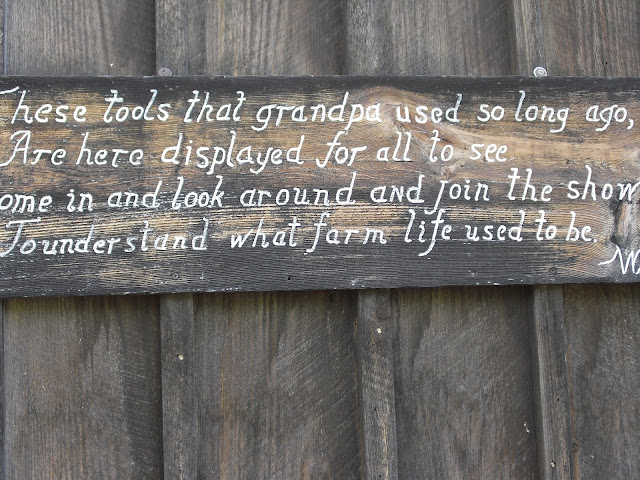 These tools that grandpa used so long ago,
Are here displayed for all to see
ome in and look around and join the show
To understand what farm life used to be.
W